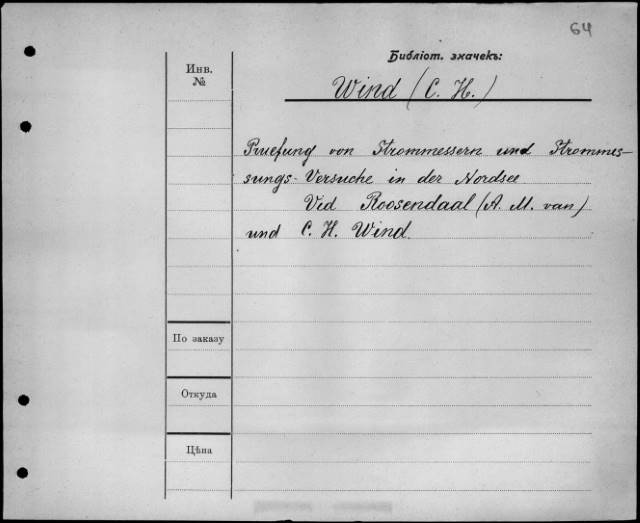 64
Библіот. значекъ:
Инв.
№
Wind (C. H.)
Pruefung von Strommessern und Strommes-
sungs-Versuche in der Nordsee
Vid Roosendaal (A. M. van)
und C. H. Wind.
По заказу
Откуда
Цѣна